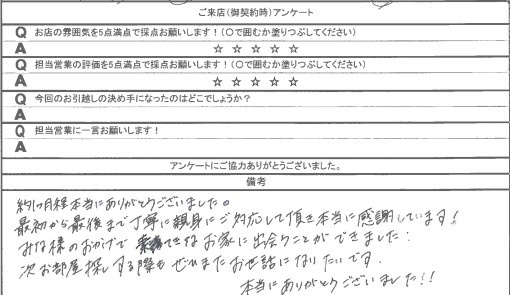 ご来店(御契約時)アンケート
Q お店の雰囲気を5点満点で採点お願いします!(〇で囲むか塗りつぶしてください)
A ☆ ☆ ☆ ☆ ☆
Q 担当営業の評価を5点満点で採点お願いします!(〇で囲むか塗りつぶしてください)
A ☆ ☆ ☆ ☆ ☆
Q 今回のお引越しの決め手になったのはどこでしょうか?
A
Q 担当営業に一言お願いします!
A
アンケートにご協力ありがとうございました。
備考
約1ヶ月程本当にありがとうございました。
最初から最後まで丁寧に親身にご対応して頂き本当に感謝しています!
みな様のおかげで素敵なお家に出会うことができました!
次お部屋探しする際もぜひまたお世話になりたいです。
本当にありがとうございました!!